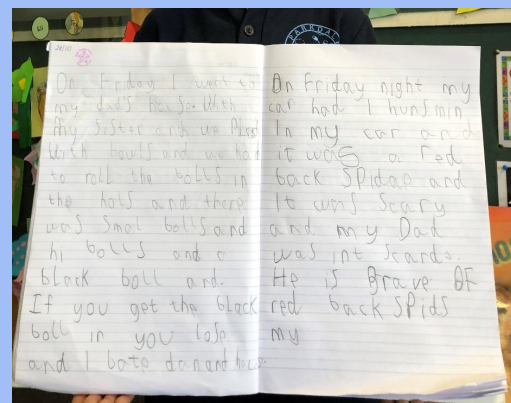 PARKDA
On Friday I went to
my dads house. With
my sister and we Plad
With boulS and we had
to roll the bollS in
the hols and there
was Smol bollS and
hi bollS and a
black boll and.
If you get the black
boll in you lose
and I bate dan and
On Friday night my
car had 1 hunSmin
In my car and
it was a red
back SPidae and
It was Scary
and my Dad
was int Scards.
He is Brave OF
red back SPidS
my